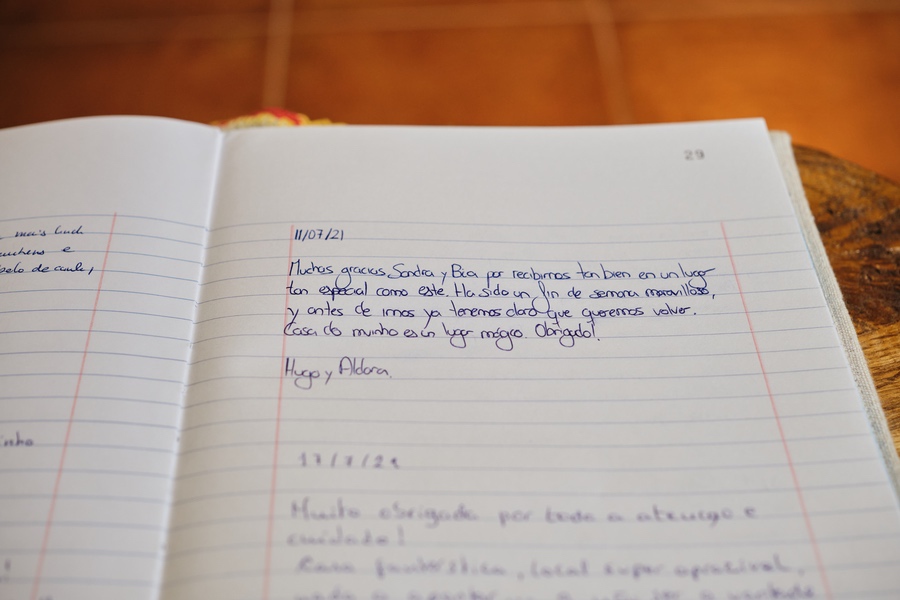 mais
e
pelo de
29
11/07/21
Muchas gracias, Sandra y Bea por recibirnos tan bien en un lugar
tan especial como este. Ha sido un fin de semana maravilloso,
y antes de irnos ya tenemos claro que queremos volver.
Casa do minho es un lugar mágico. Obrigado!
Hugo y Aldara.
17/7/21
Muito obrigada por toda a atenção e
cuidado!
Casa fantástica, local super aprazível,